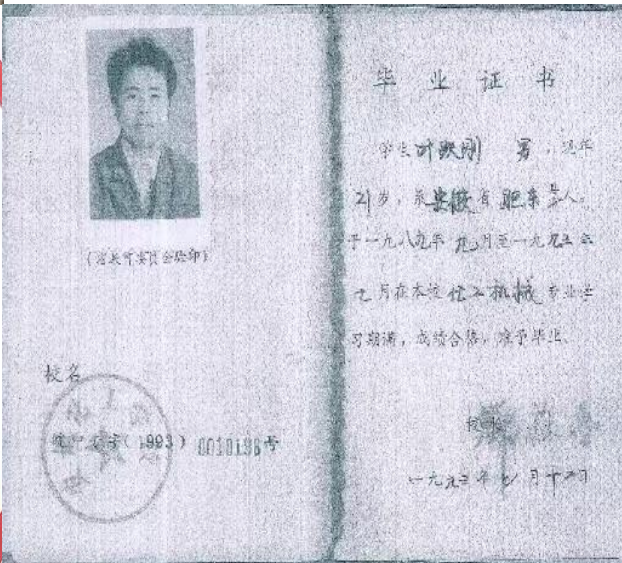 (省教育委员会验印)
校名
(1993) 0010196号
毕业证书
学生叶跃刚 男,现年
21岁,系安徽省肥东县人。
于一九八九年九月至一九九三年
七月在本校化工机械专业学
习期满,成绩合格,准予毕业。
校长
一九九三年七月十 日